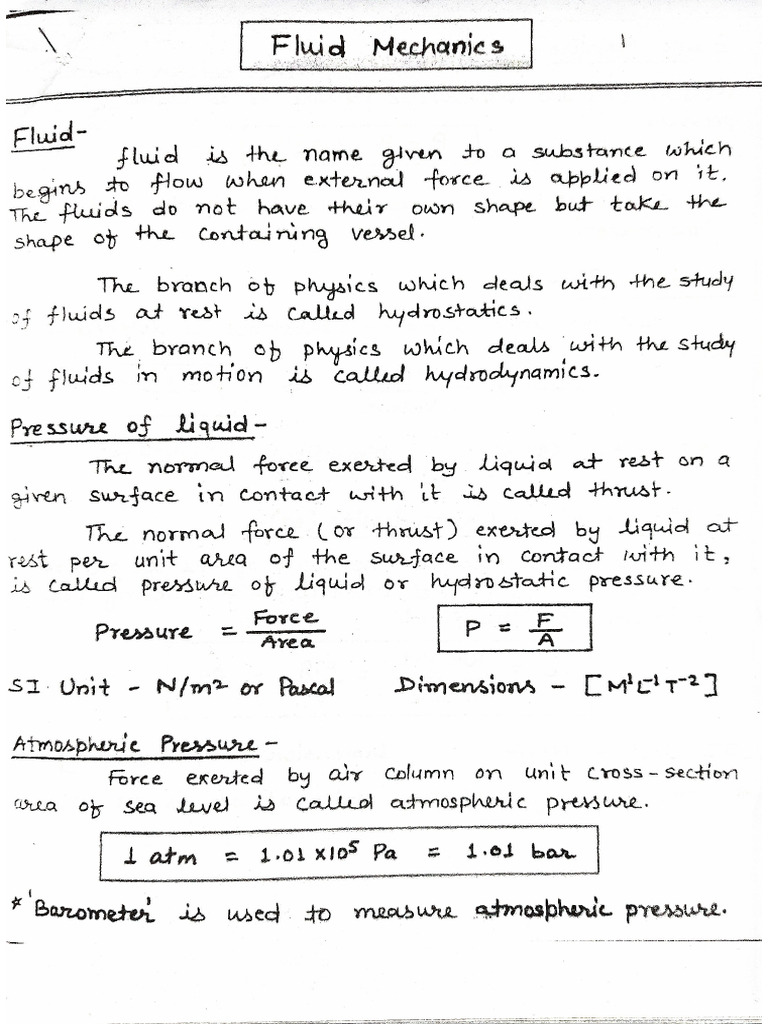 Fluid Mechanics
1
Fluid-
fluid is the name given to a substance which
begins to flow when external force is applied on it.
The fluids do not have their own shape but take the
shape of the containing vessel.
The branch of physics which deals with the study
of fluids at rest is called hydrostatics.
The branch of physics which deals with the study
of fluids in motion is called hydrodynamics.
Pressure of liquid-
The normal force exerted by liquid at rest on a
given surface in contact with it is called thrust.
The normal force (or thrust) exerted by liquid at
rest per unit area of the surface in contact with it,
is called pressure of liquid or hydrostatic pressure.
Pressure = Force/Area P = F/A
SI Unit - N/m² or Pascal Dimensions - [M¹L⁻¹T⁻²]
Atmospheric Pressure-
Force exerted by air column on unit cross-section
area of sea level is called atmospheric pressure.
1 atm = 1.01 ×10⁵ Pa = 1.01 bar
* 'Barometer' is used to measure atmospheric pressure.